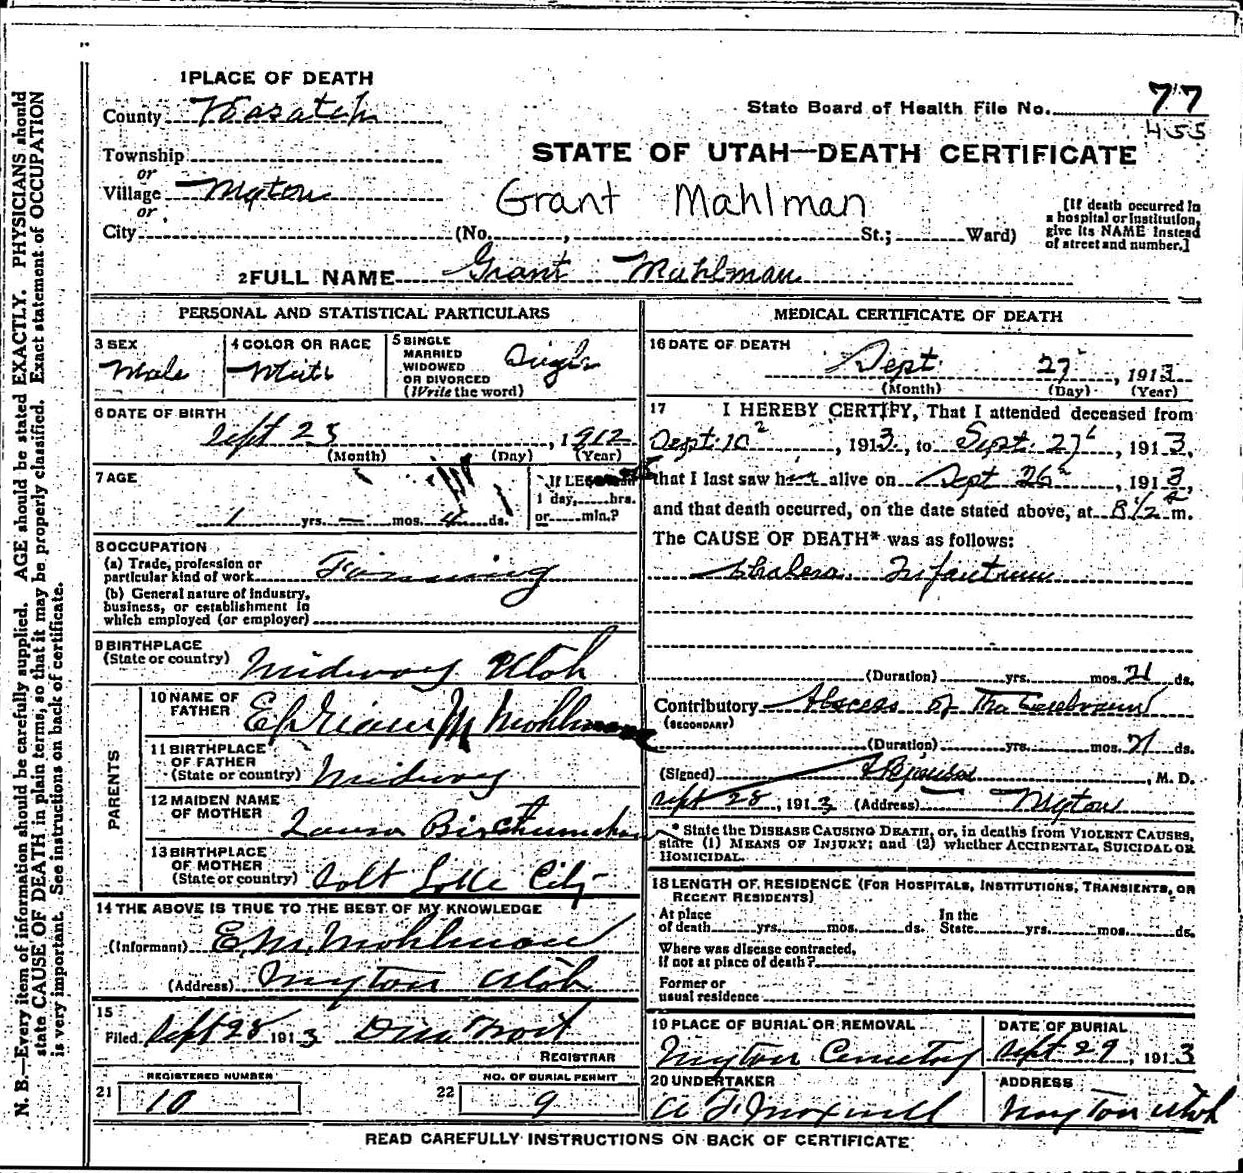 N. B.—Every item of information should be carefully supplied. AGE should be stated EXACTLY. PHYSICIANS should
state CAUSE OF DEATH in plain terms, so that it may be properly classified. Exact statement of OCCUPATION
is very important. See instructions on back of certificate.
1 PLACE OF DEATH
County Wasatch
State Board of Health File No. 77
455
Township
or
STATE OF UTAH—DEATH CERTIFICATE
Village Myton
or
Grant Mahlman
City (No. , St.; Ward)
[If death occurred in
a hospital or institution,
give its NAME instead
of street and number.]
2 FULL NAME Grant Mahlman
PERSONAL AND STATISTICAL PARTICULARS
3 SEX
Male
4 COLOR OR RACE
White
5 SINGLE
MARRIED
WIDOWED
OR DIVORCED
(Write the word)
Single
6 DATE OF BIRTH
Sept 23, 1912
(Month) (Day) (Year)
7 AGE
1 yrs. — mos. 4 ds.
If LESS than
1 day, hrs.
or min.?
8 OCCUPATION
(a) Trade, profession or
particular kind of work
(b) General nature of industry,
business, or establishment in
which employed (or employer)
9 BIRTHPLACE
(State or country) Midway Utah
PARENTS
10 NAME OF
FATHER M Mohlman
11 BIRTHPLACE
OF FATHER
(State or country) Midway
12 MAIDEN NAME
OF MOTHER Laura
13 BIRTHPLACE
OF MOTHER
(State or country) Salt Lake City
14 THE ABOVE IS TRUE TO THE BEST OF MY KNOWLEDGE
(Informant) E. M. Mohlman
(Address) Myton Utah
15
Filed Sept 28 1913
REGISTRAR
REGISTERED NUMBER
21 10
NO. OF BURIAL PERMIT
22 9
MEDICAL CERTIFICATE OF DEATH
16 DATE OF DEATH
Sept. 27, 1913
(Month) (Day) (Year)
17 I HEREBY CERTIFY, That I attended deceased from
Sept. 10, 1913, to Sept. 27, 1913,
that I last saw him alive on Sept 26, 1913,
and that death occurred, on the date stated above, at 8 1/2 m.
The CAUSE OF DEATH* was as follows:
Cholera Infantum
(Duration) yrs. mos. 21 ds.
Contributory Abscess of The Cerebrum
(SECONDARY)
(Duration) yrs. mos. 21 ds.
(Signed) , M. D.
Sept 28, 1913 (Address) Myton
* State the DISEASE CAUSING DEATH, or, in deaths from VIOLENT CAUSES,
state (1) MEANS OF INJURY; and (2) whether ACCIDENTAL, SUICIDAL OR
HOMICIDAL.
18 LENGTH OF RESIDENCE (FOR HOSPITALS, INSTITUTIONS, TRANSIENTS, OR
RECENT RESIDENTS)
At place
of death yrs. mos. ds.
In the
State yrs. mos. ds.
Where was disease contracted,
if not at place of death?
Former or
usual residence
19 PLACE OF BURIAL OR REMOVAL
Myton Cemetery
DATE OF BURIAL
Sept 29, 1913
20 UNDERTAKER
ADDRESS
Myton Utah
READ CAREFULLY INSTRUCTIONS ON BACK OF CERTIFICATE